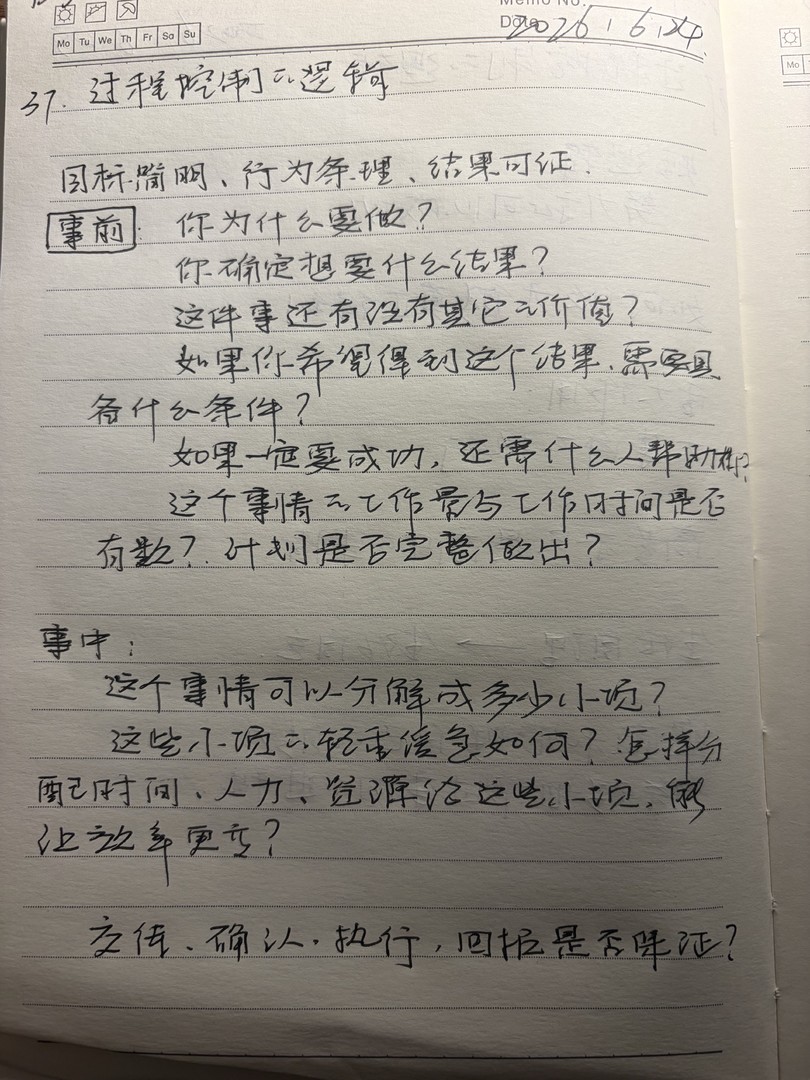 Memo No.
Date 2026.6.24.
Mo Tu We Th Fr Sa Su
37. 过程控制的逻辑
目标简明、行为条理、结果可证.
事前: 你为什么要做?
你确定想要什么结果?
这件事还有没有其它的价值?
如果你希望得到这个结果、需要具
备什么条件?
如果一定要成功, 还需什么人帮助
这个事情的工作量与工作时间是否
有数? 计划是否完整做出?
事中:
这个事情可以分解成多少小项?
这些小项的轻重缓急如何? 怎样分
配时间、人力、资源给这些小项, 能
让效率更高?
交待、确认、执行, 回报是否保证?
Mo